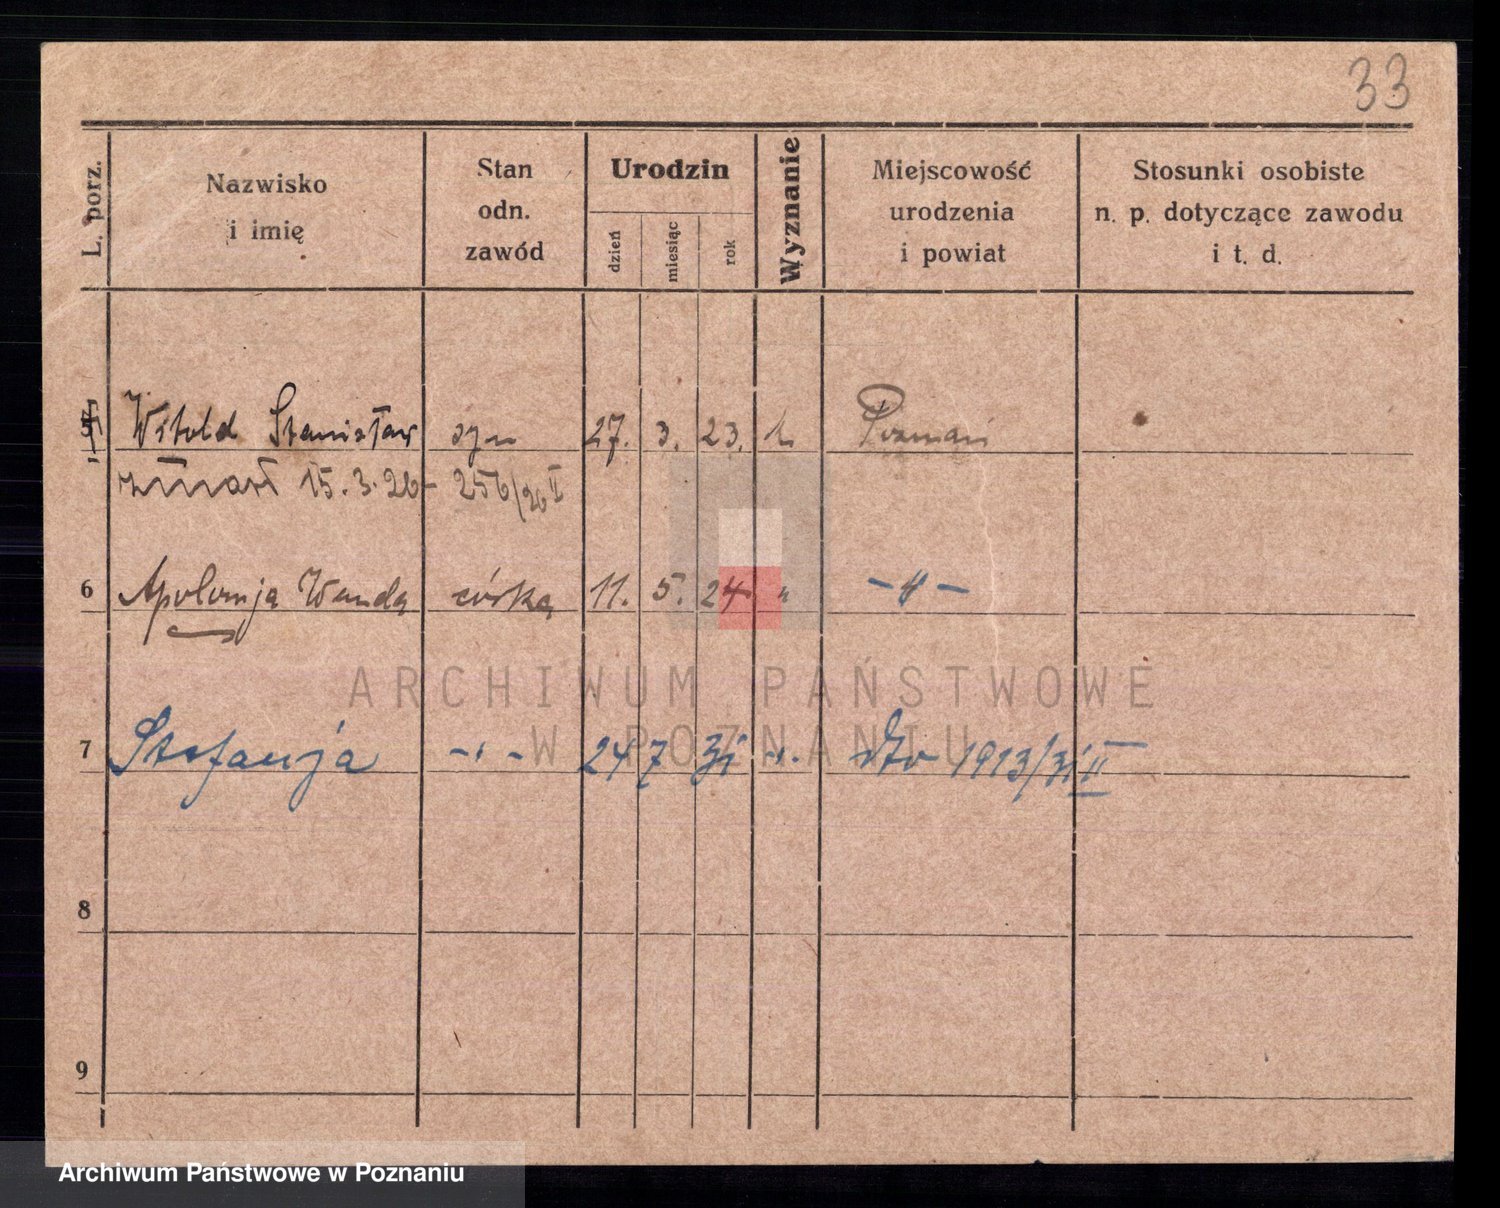 33
L. porz.
Nazwisko
i imię
Stan
odn.
zawód
Urodzin
dzień
miesiąc
rok
Wyznanie
Miejscowość
urodzenia
i powiat
Stosunki osobiste
n. p. dotyczące zawodu
i t. d.
5 Witold Stanisław syn 27. 3. 23. k Poznań
zmarł 15.3.26 - 256/26 II
6 Apolonja Wanda córka 11. 5. 24 " -"-
ARCHIWUM PAŃSTWOWE
W POZNANIU
7 Stefanja -"- 24 7 31 -"- dto 1913/31 II
8
9
Archiwum Państwowe w Poznaniu